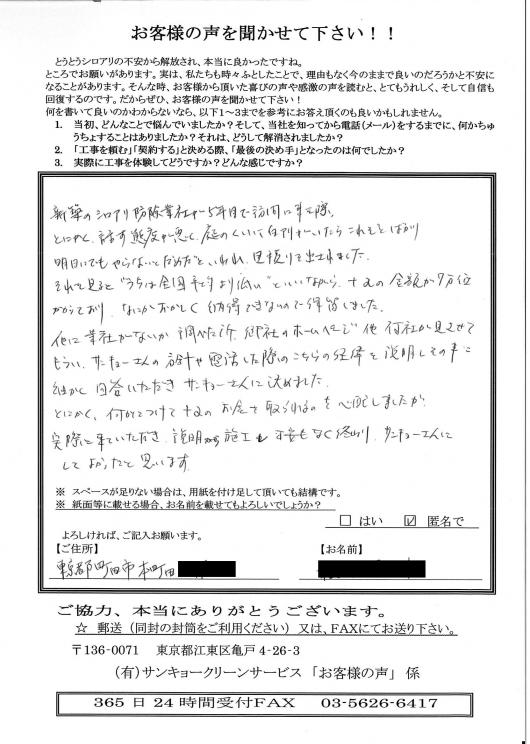 お客様の声を聞かせて下さい！！
とうとうシロアリの不安から解放され、本当に良かったですね。
ところでお願いがあります。実は、私たちも時々ふとしたことで、理由もなく今のままで良いのだろうかと不安に
なることがあります。そんな時、お客様から頂いた喜びの声や感激の声を読むと、とてもうれしく、そして自信も
回復するのです。だからぜひ、お客様の声を聞かせて下さい！
何を書いて良いのかわからないなら、以下1～3までを参考にお答え頂くのも良いかもしれません。
1. 当初、どんなことで悩んでいましたか？そして、当社を知ってから電話（メール）をするまでに、何かちゅ
うちょすることはありましたか？それは、どうして解消されましたか？
2. 「工事を頼む」「契約する」と決める際、「最後の決め手」となったのは何でしたか？
3. 実際に工事を体験してどうですか？どんな感じですか？
新築のシロアリ防除業社から5年目で訪問に来た際、
とにかく、話す態度が悪く、庭のくいに白刃がいたら これもとばかり
明日にでもやらないとだめだと、いわれ、見積りで出されました。
それを見ると"うちは全国平均より低い"といいながら、その金額が 万位
かかっており、なにかおかしく納得できないので保留しました。
他に業社がないか調べた所、御社のホームページ他何社か見させて
もらい、サンキョーさんの 評や電話した際のこちらの経緯を説明しての事に
細かく回答いただき サンキョーさんに決めました。
とにかく、何かとつけて お金を取られるのを心配しましたが
実際に来ていただき、説明から施工も不安もなく終わり、サンキョーさんに
して よかったと思います
※ スペースが足りない場合は、用紙を付け足して頂いても結構です。
※ 紙面等に載せる場合、お名前を載せてもよろしいでしょうか？
□ はい ☑ 匿名で
よろしければ、ご記入お願います。
【ご住所】 【お名前】
東京都町田市本町田
ご協力、本当にありがとうございます。
☆ 郵送（同封の封筒をご利用ください）又は、FAXにてお送り下さい。
〒136-0071 東京都江東区亀戸4-26-3
（有）サンキョークリーンサービス 「お客様の声」 係
365日24時間受付FAX 03-5626-6417